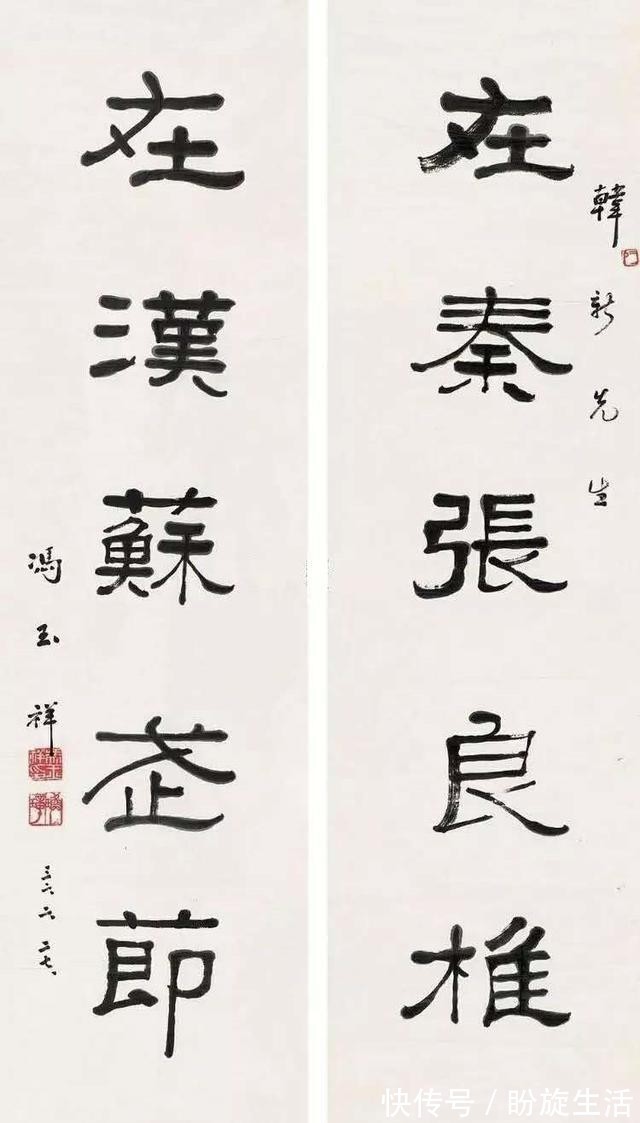 韓新先生
在秦張良椎
在漢蘇武節
馮玉祥
三六、六、二七、
快传号／盼旋生活